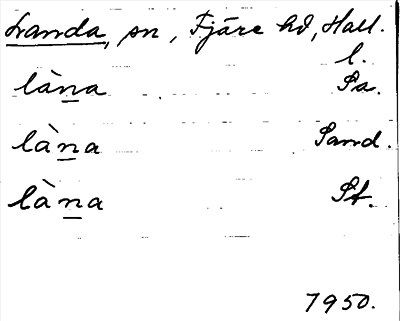 Landa, sn, Fjäre hd, Hall.
l.
làṉa Sa.
làṉa Sand.
làṉa St.
7950.